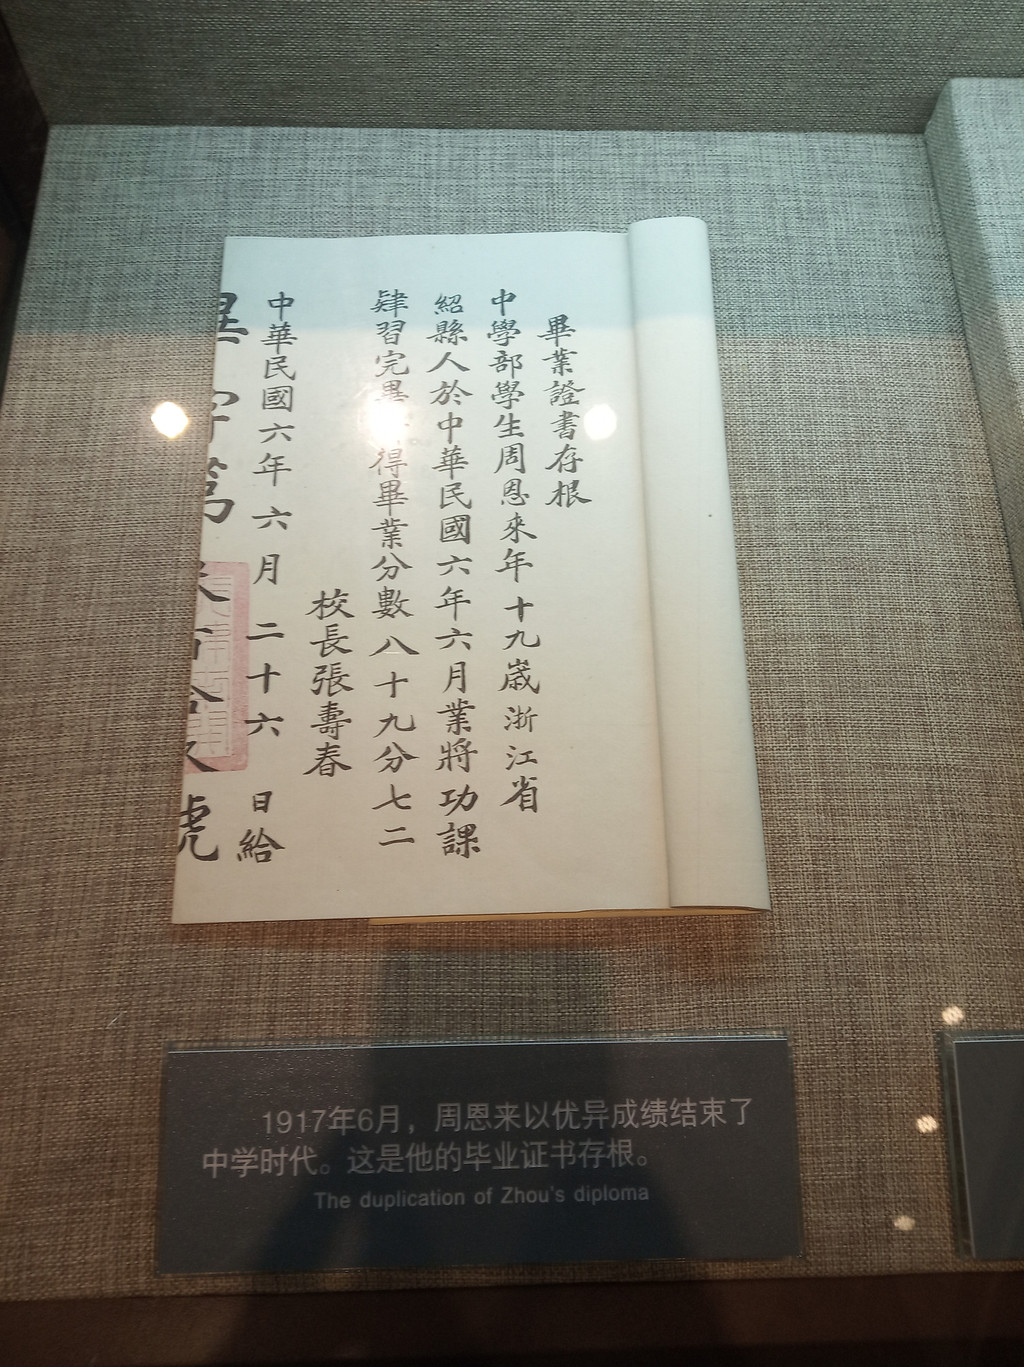 畢業證書存根
中學部學生周恩來年十九歲浙江省
紹縣人於中華民國六年六月業將功課
肄習完得畢業分數八十九分七二
校長張壽春
中華民國六年六月二十六日給
字第號
1917年6月，周恩来以优异成绩结束了
中学时代。这是他的毕业证书存根。
The duplication of Zhou's diploma